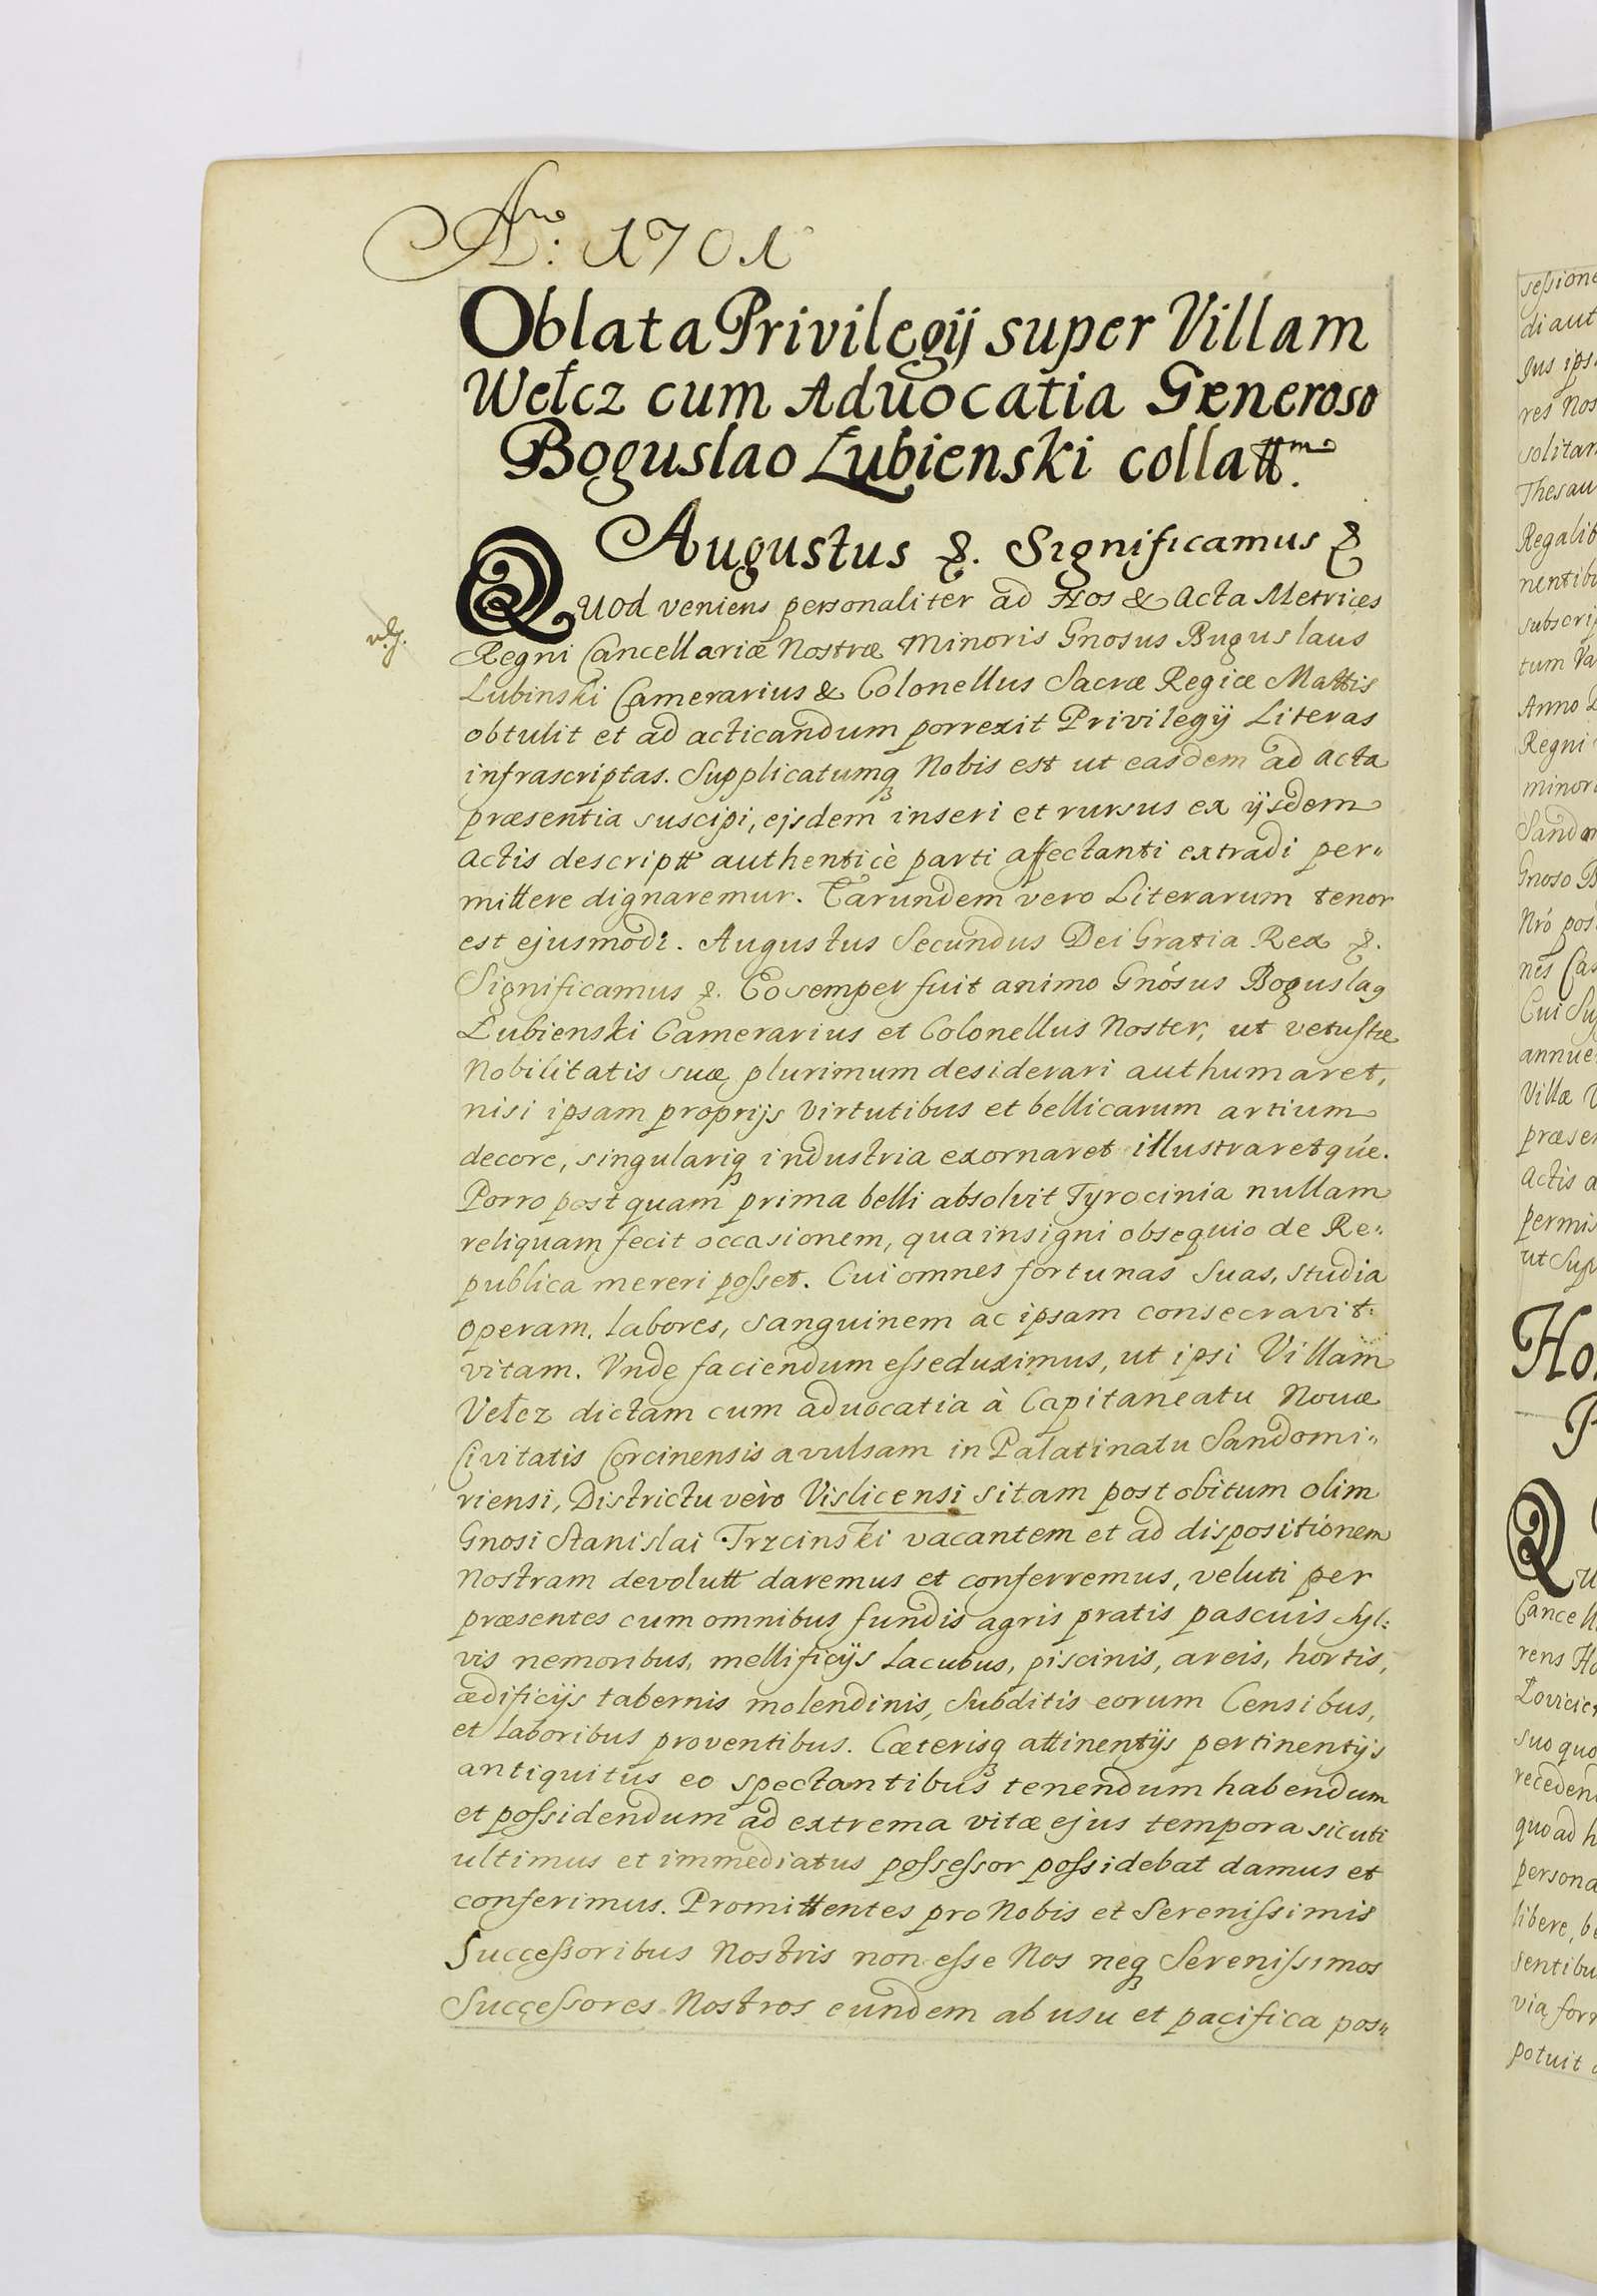 Ano: 1701
Oblata Privilegij super Villam
Wełcz cum Aduocatia Generoso
Boguslao Łubienski collattm.
Augustus &. Significamus &
QUod veniens personaliter ad Nos & Acta Metrices
Regni Cancellariæ Nostræ Minoris Gnosus Buguslaus
Lubinski Camerarius & Colonellus Sacræ Regiæ Mattis
obtulit et ad acticandum porrexit Privilegij Literas
infrascriptas. Supplicatumq Nobis est ut easdem ad acta
præsentia suscipi, ejsdem inseri et rursus ex ijsdem
Actis descriptt authenticè parti affectanti extradi per„
mittere dignaremur. Earundem vero Literarum tenor
est ejusmodi. Augustus Secundus Dei Gratia Rex &.
Significamus &. Eo semper fuit animo Gnósus Boguslaq
Lubienski Camerarius et Colonellus Noster, ut vetustæ
Nobilitatis suæ plurimum desiderari authumaret,
nisi ipsam proprijs Virtutibus et bellicarum artium
decore, singulariq industria exornaret illustraretqúe.
Porro postquam prima belli absolvit Tyrocinia nullam
reliquam fecit occasionem, qua insigni obsequio de Re:
publica mereri posset. Cui omnes fortunas Suas, studia
operam, labores, sanguinem ac ipsam consecravit
vitam. Vnde faciendum esse duximus, ut ipsi Villam
Vełcz dictam cum aduocatia à Capitaneatu Nouæ
Civitatis Corcinensis avulsam in Palatinatu Sandomi„
riensi, Districtu vèro Vislicensi sitam post obitum olim
Gnosi Stanislai Trzcinski vacantem et ad dispositionem
Nostram devolutt daremus et conferremus, veluti per
præsentes cum omnibus fundis agris pratis pascuis Syl:
vis nemoribus, mellificijs Lacubus, piscinis, areis, hortis,
ædificijs tabernis molendinis, Subditis eorum Censibus,
et laboribus proventibus. Cæterisq attinentijs pertinentijs
antiquitus eo spectantibus tenendum habendum
et possidendum ad extrema vitæ ejus tempora sicuti
ultimus et immediatus possessor possidebat damus et
conferimus. Promittentes pro Nobis et Serenissimis
Successoribus Nostris non esse Nos neq Serenissimos
Successores Nostros eundem ab usu et pacifica pos„